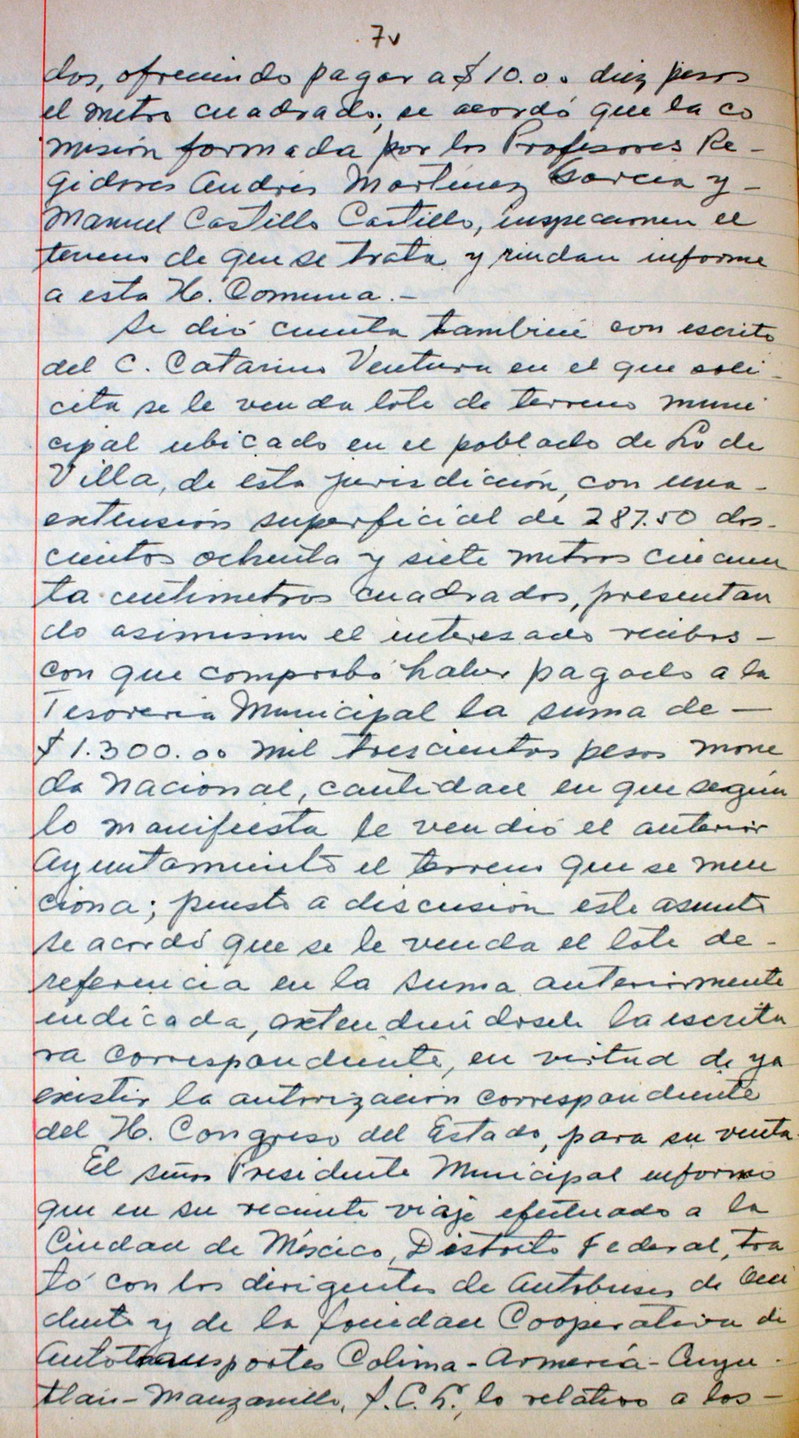 7v
dos, ofreciendo pagar a $10.00 diez pesos
el metro cuadrado; se acordó que la co
misión formada por los Profesores Re-
gidores Andrés Martínez García y -
Manuel Castillo Castillo, inspecionen el
terreno de que se trata y rindan informe
a esta H. Comuna.-
Se dió cuenta también con escrito
del C. Catarino Ventura en el que soli-
cita se le venda lote de terreno muni
cipal ubicado en el poblado de Lo de
Villa, de esta jurisdicción, con una-
extensión superficial de 287.50 dos-
cientos ochenta y siete metros cincuen
ta centímetros cuadrados, presentan
do asimismo el interesado recibos-
con que comprobó haber pagado a la
Tesorería Municipal la suma de-
$1.300.00 mil trescientos pesos mone
da nacional, cantidad en que según
lo manifiesta le vendió el anterior
Ayuntamiento el terreno que se men
ciona; puesto a discusión este asunto
se acordó que se le venda el lote de-
referencia en la suma anteriormente
indicada, extendiéndosele la escritu
ra correspondiente, en virtud de ya
existir la autorización correspondiente
del H. Congreso del Estado, para su venta.
El señor Presidente Municipal informó
que en su reciente viaje efectuado a la
Ciudad de México, Distrito Federal, tra
tó con los dirigentes de Autobuses de Occi
dente y de la Sociedad Cooperativa de
Autotransportes Colima-Armería-Cuyu-
tlán-Manzanillo, S.C.L., lo relativo a los-